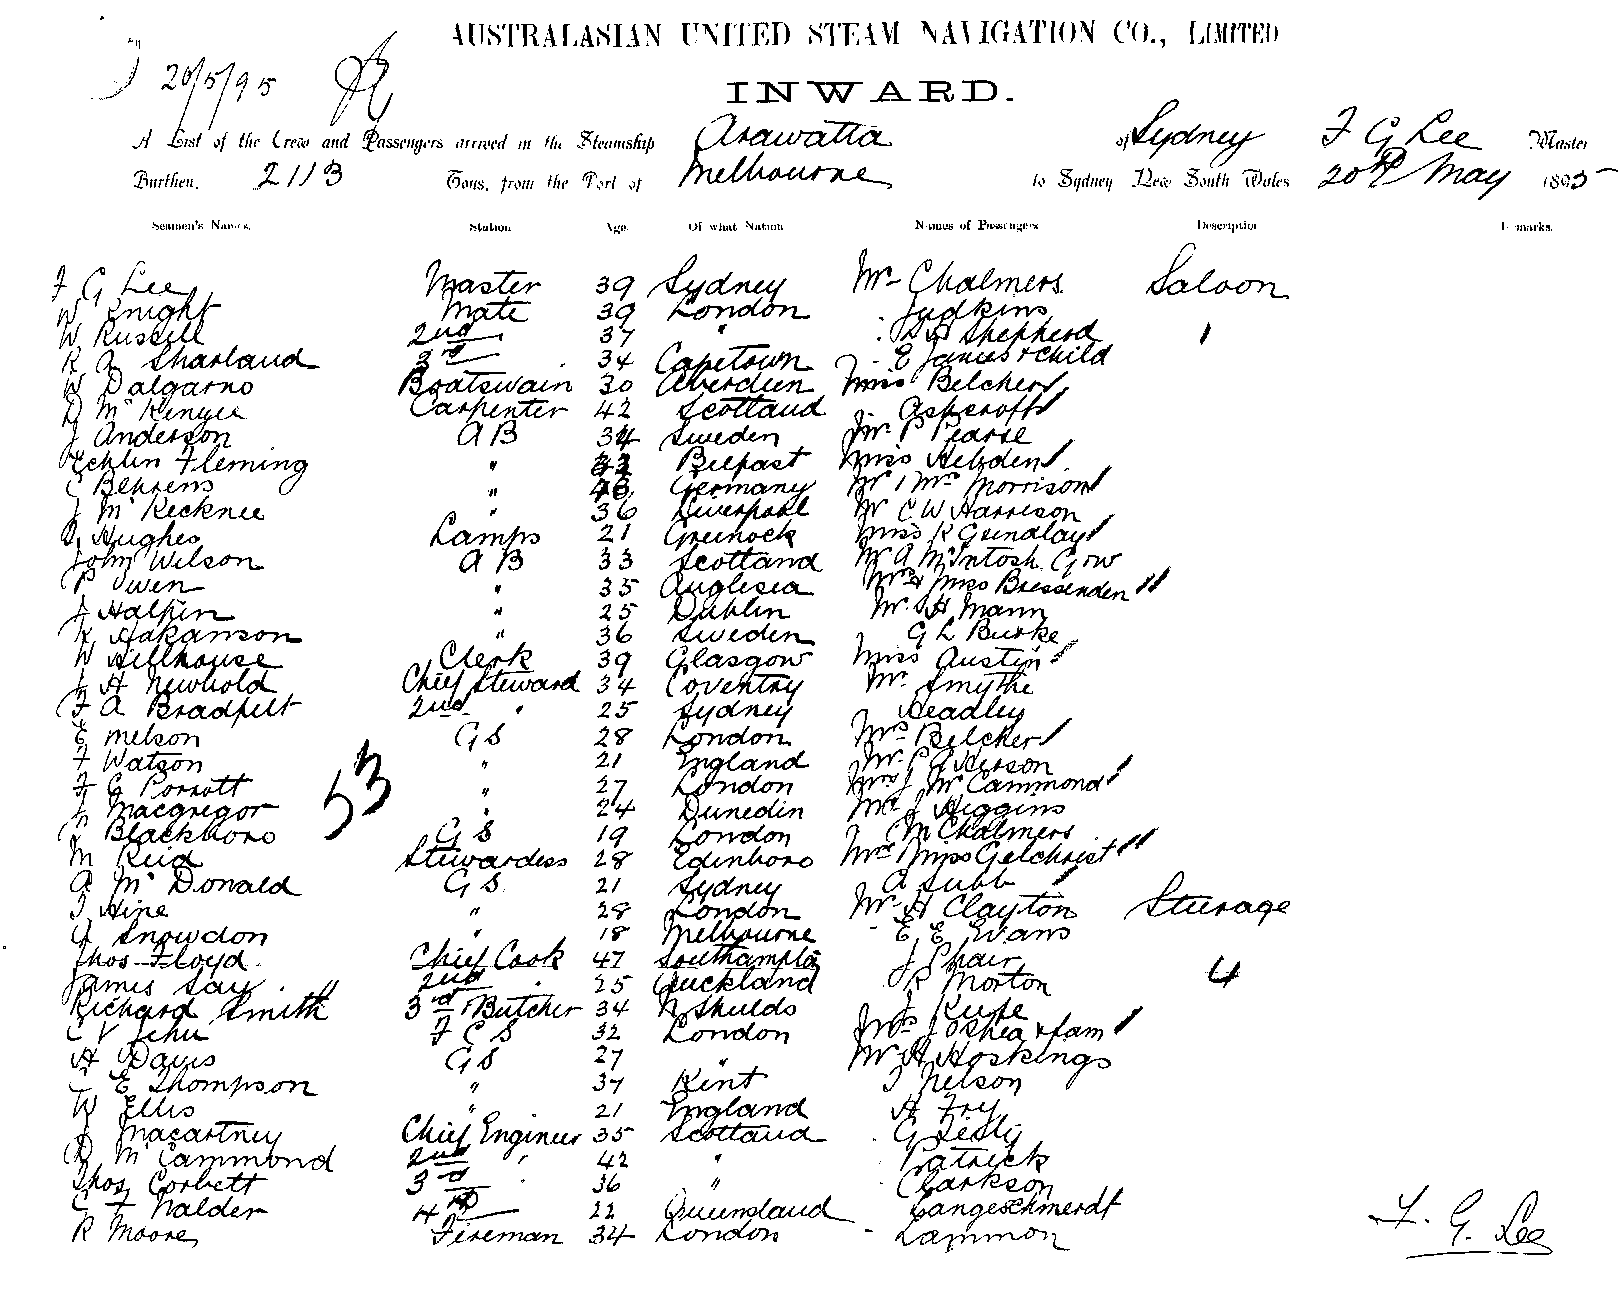 AUSTRALASIAN UNITED STEAM NAVIGATION CO., LIMITED
20/5/95
INWARD.
A List of the Crew and Passengers arrived in the Steamship Arawatta of Sydney F G Lee Master
Burthen, 2113 Tons, from the Port of Melbourne to Sydney New South Wales 20th May 1895
Seamen's Names. Station Age Of what Nation Names of Passengers Description Remarks.
F G Lee Master 39 Sydney Mr Chalmers Saloon
W Knight Mate 39 London Judkins
W Russell 2nd 37 " Shepherd
R A Sharland 3rd 34 Capetown E James & child
W Dalgarno Boatswain 30 Aberdeen Miss Belcher
D McKenzie Carpenter 42 Scotland Ashcroft
J Anderson A B 34 Sweden Mr P Pearse
Fleming " Belfast Miss Hebden
C Behrens " Germany Mr & Mrs Morrison
J McKecknee " 36 Liverpool Mr C W Harrison
Hughes Lamps 21 Greenock Miss K Grindlay
John Wilson A B 33 Scotland Mr A McIntosh Gow
P Owen " 35 Anglesia Mrs & Miss Bressenden
J Halpin " 25 Dublin Mr H Mann
Hakanson " 36 Sweden G L Burke
W Hillhouse Clerk 39 Glasgow Miss Austin
A Newbold Chief Steward 34 Coventry Mr Smythe
F A Bradfelt 2nd " 25 Sydney Headley
E Melson G S 28 London Mrs Belcher
F Watson " 21 England Mr
F G Porrott " 27 London Mrs J McCammond
Macgregor " 24 Dunedin Mr J Higgins
53
Blackboro G S 19 London M Chalmers
M Reid Stewardess 28 Edinboro Mrs & Miss Gilchrist
A McDonald G S 21 Sydney A Tubb
J Hine " 28 London Mr H Clayton Steerage
G Snowdon " 18 Melbourne E E Evans
Thos Floyd Chief Cook 47 Southampton J Phair
James Say 2nd " 25 Auckland R Morton 4
Richard Smith 3rd & Butcher 34 N Shields J Rute
C V Jehu F C S 32 London Mrs J OShea & fam
H Davis G S 27 " Mr H Hoskings
E Thompson " 37 Kent J Nelson
W Ellis " 21 England H Fry
J Macartney Chief Engineer 35 Scotland G
D McCammond 2nd " 42 " Patrick
Thos Corbett 3rd " 36 " Clarkson
C F Nalder 4th 22 Queensland Langeschmerdt
R Moore Fireman 34 London Lammon
F. G. Lee